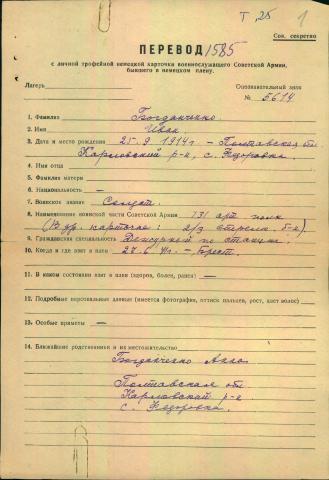 Т, 25 1
Сов. секретно
ПЕРЕВОД 1585
с личной трофейной немецкой карточки военнослужащего Советской Армии,
бывшего в немецком плену.
Лагерь
Опознавательный знак
№ 5614
1. Фамилия Богданченко
2. Имя Иван
3. Дата и место рождения 25.9.1914г. – Полтавская обл
Карловский р-н, с. Федоровка.
4. Имя отца
5. Фамилия матери —
6. Национальность —
7. Воинское звание Солдат
8. Наименование воинской части Советской Армии 131 арт полк
(в др. карточке: 2/3 стрелк. б-н)
9. Гражданская специальность Дежурный по станции.
10. Когда и где взят в плен 27.6.41г. – Брест.
11. В каком состоянии взят в плен (здоров, болен, ранен) —
12. Подробные персональные данные (имеется фотография, оттиск пальцев, рост, цвет волос)
13. Особые приметы —
14. Ближайшие родственники и их местожительство
Богданченко Анна
Полтавская обл
Карловский р-н
с. Федоровка.